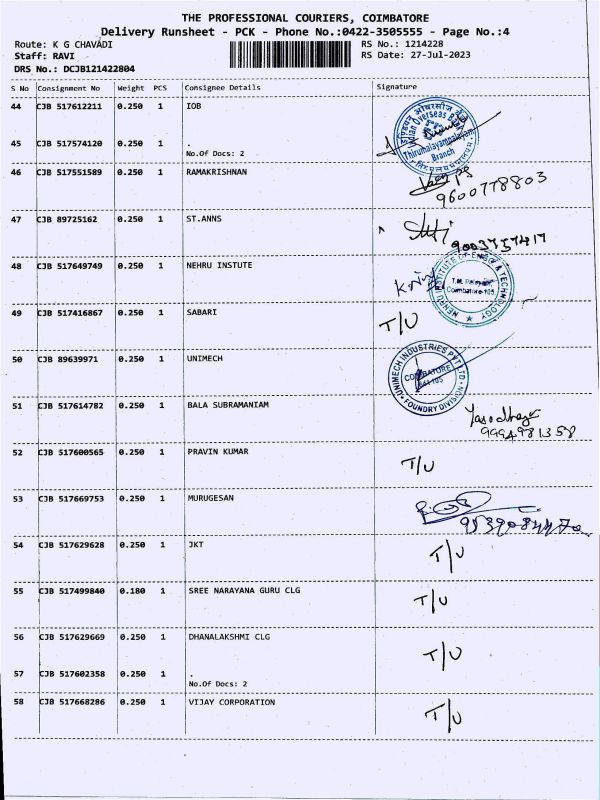 THE PROFESSIONAL COURIERS, COIMBATORE
Delivery Runsheet - PCK - Phone No.:0422-3505555 - Page No.:4
Route: K G CHAVADI
RS No.: 1214228
Staff: RAVI
RS Date: 27-Jul-2023
DRS No.: DCJB121422804
S No Consignment No Weight PCS Consignee Details Signature
44 CJB 517612211 0.250 1 IOB
Indian Overseas Bank
Thirumalayampalayam
Branch
45 CJB 517574120 0.250 1 .
No.Of Docs: 2
46 CJB 517551589 0.250 1 RAMAKRISHNAN
9600778803
47 CJB 89725162 0.250 1 ST.ANNS
9003757417
48 CJB 517649749 0.250 1 NEHRU INSTUTE
NEHRU INSTITUTE OF ENGG & TECHNOLOGY
T.M. Palayam
Coimbatore-105
49 CJB 517416867 0.250 1 SABARI T/U
50 CJB 89639971 0.250 1 UNIMECH
UNIMECH INDUSTRIES PVT LTD
COIMBATORE
641 105
FOUNDRY DIVISION
51 CJB 517614782 0.250 1 BALA SUBRAMANIAM
9994981358
52 CJB 517600565 0.250 1 PRAVIN KUMAR T/U
53 CJB 517669753 0.250 1 MURUGESAN
54 CJB 517629628 0.250 1 JKT T/U
55 CJB 517499840 0.180 1 SREE NARAYANA GURU CLG T/U
56 CJB 517629669 0.250 1 DHANALAKSHMI CLG T/U
57 CJB 517602358 0.250 1 .
No.Of Docs: 2
58 CJB 517668286 0.250 1 VIJAY CORPORATION T/U